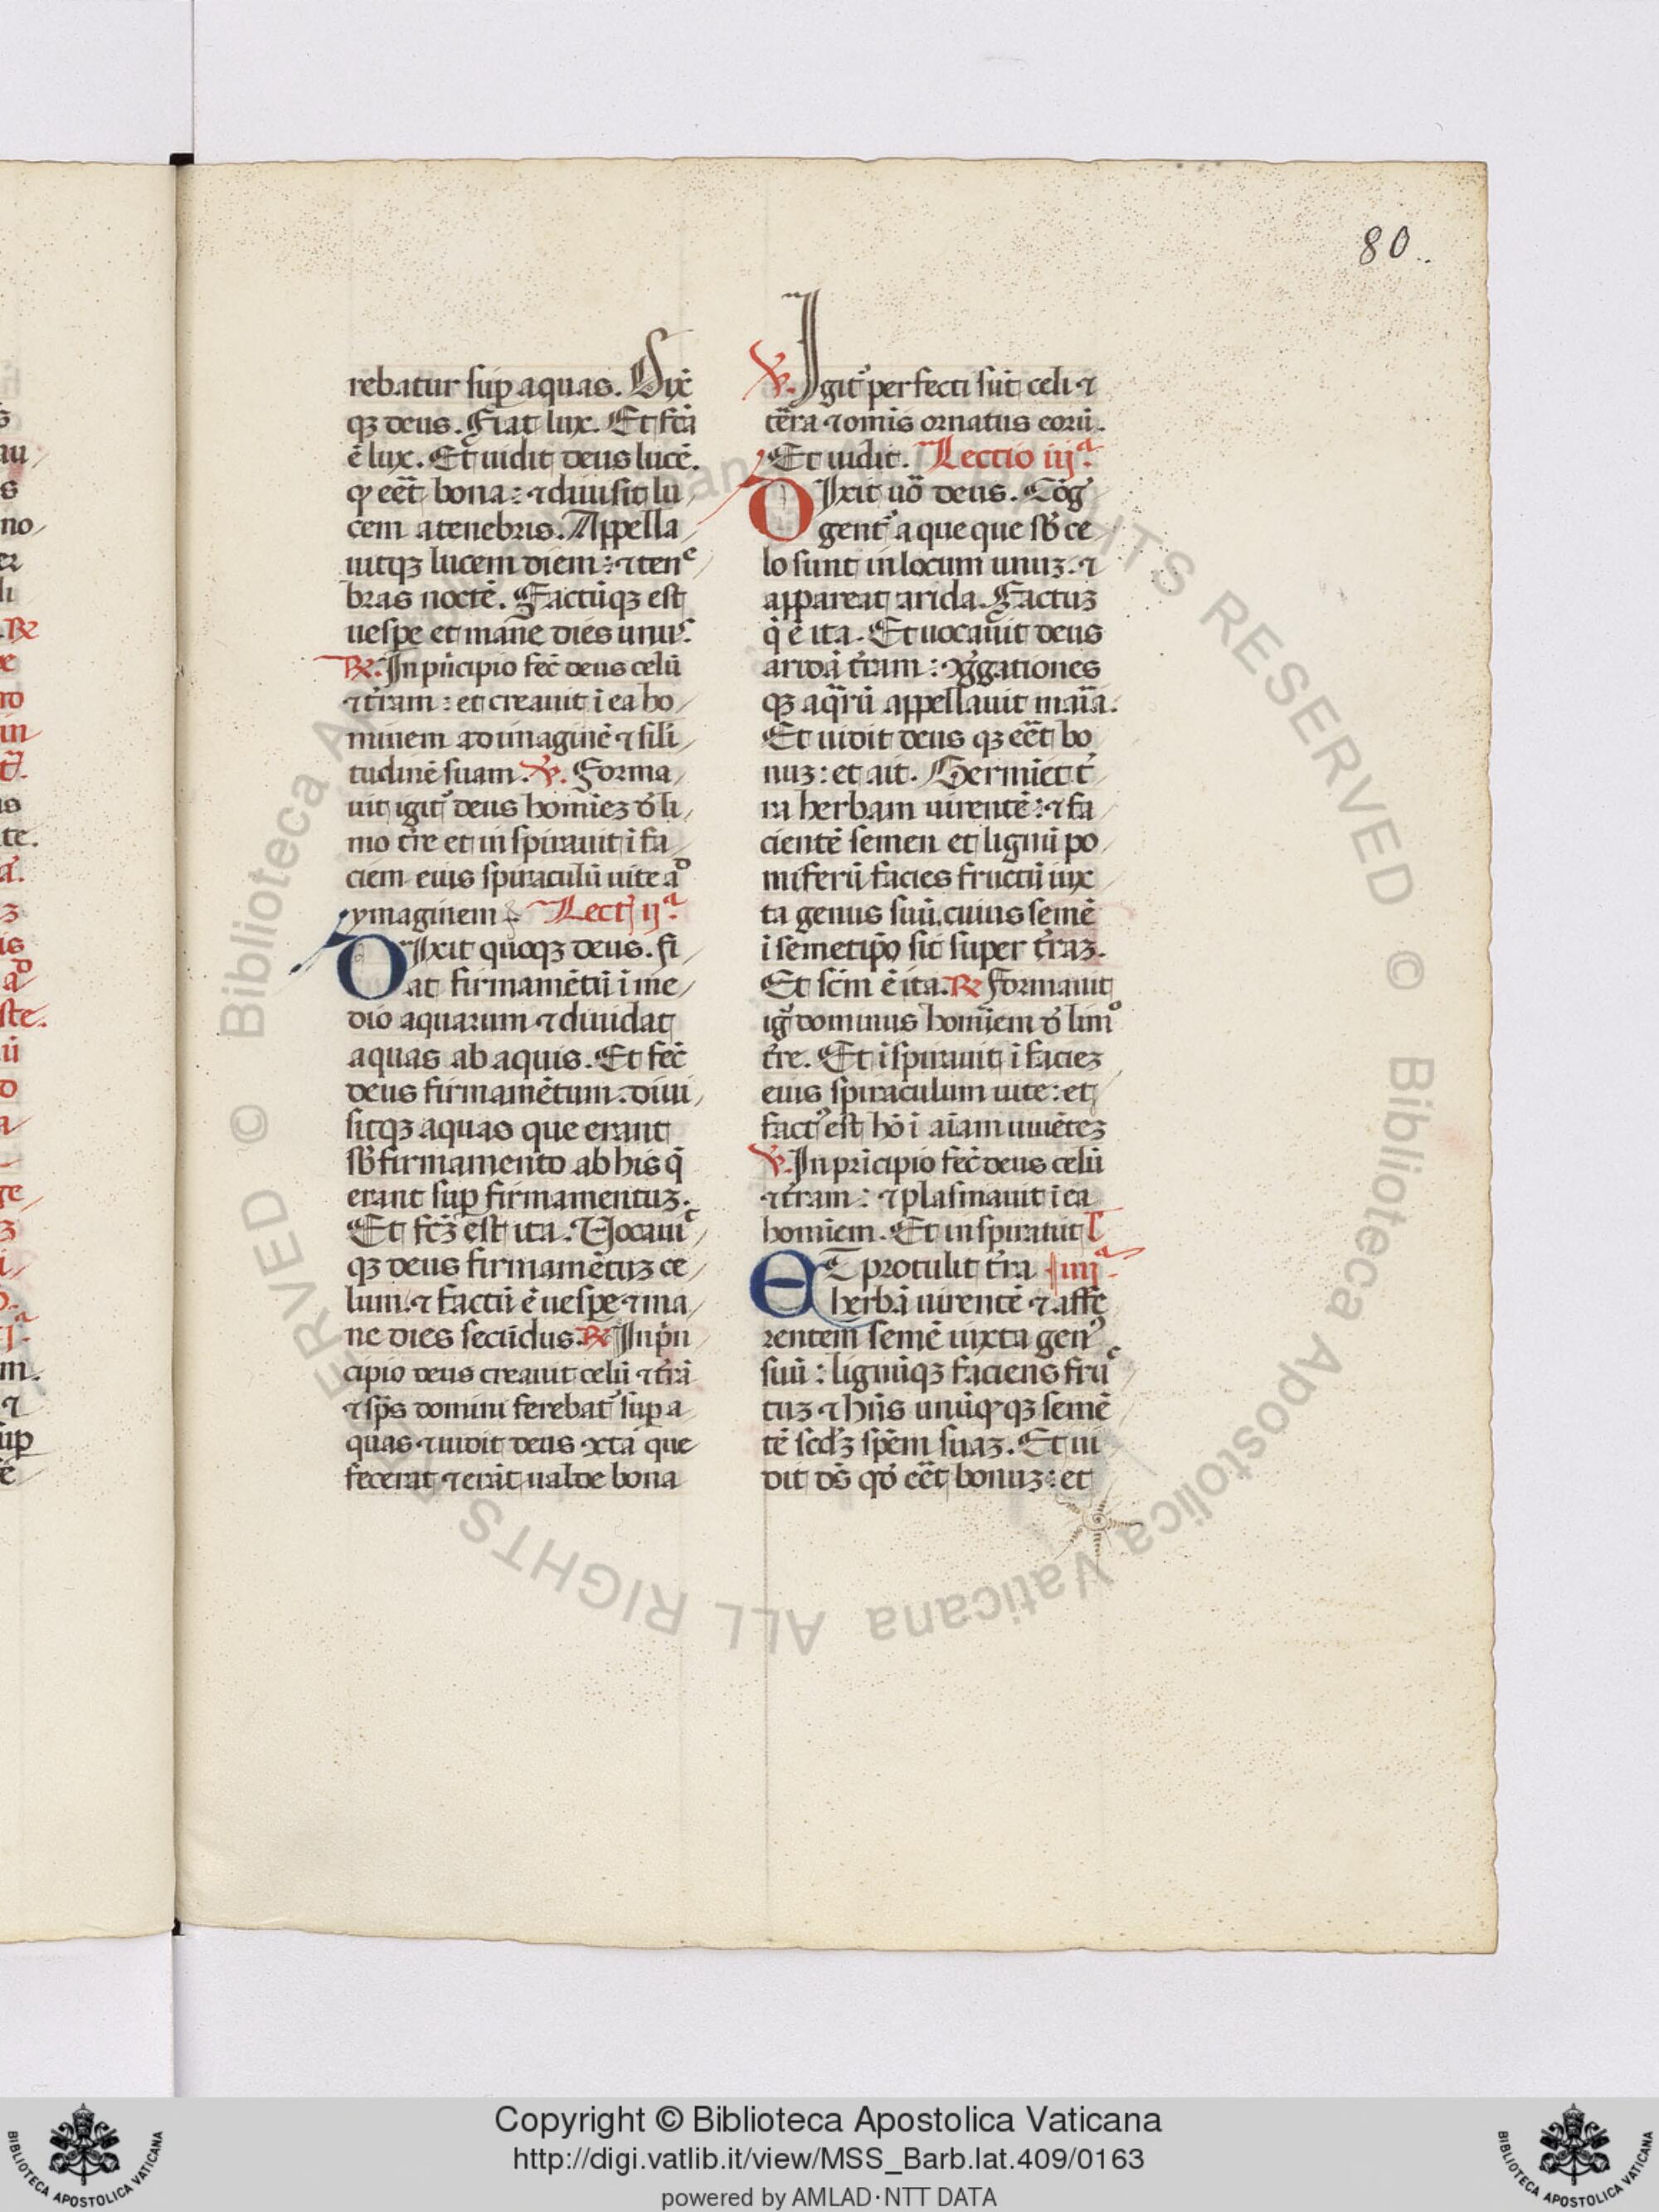 80.
rebatur sup aquas. Dix̄
qꝫ deus. Fiat lux. Et fc̄a
ē lux. Et uidit deus lucē.
ꝙ eēt bona: ⁊ diuisit lu
cem a tenebris. Appella
uitqꝫ lucem diem: ⁊ tene
bras noctē. Factūqꝫ est
uespe et mane dies unus.
℟. In pīcipio fec̄ deus celū
⁊ t̄ram: et creauit ī ea ho
minem ad imaginē ⁊ sili
tudinē suam. ℣. Forma
uit igit᷑ deus homīeꝫ d̄ li
mo t̄re et inspirauit ī fa
ciem eius spiraculū uite ad
ymaginem Lect ijª.
DIxit quoqꝫ deus. fi
at firmamētū ī me
dio aquarum ⁊ diuidat
aquas ab aquis. Et fec̄
deus firmamētum. diui
sitqꝫ aquas que erant
sb̄ firmamento ab his q̄
erant sup firmamentuꝫ.
Et fc̄ꝫ est ita. Uocauit
qꝫ deus firmamētuꝫ ce
lum. ⁊ factū ē uespe ⁊ ma
ne dies secūdus. ℟ In pn
cipio deus creauit celū ⁊ t̄rā
⁊ sp̄s domini ferebat᷑ sup a
quas ⁊ uidit deus xta que
fecerat ⁊ erāt ualde bona
℣. Igit᷑ perfecti sūt celi ⁊
tēra ⁊ omīs ornatus eorū.
Et uidit. Lectio iijª.
DIxit uō deus. Cōg
gent᷑ aque que sb̄ ce
lo sunt in locum unuꝫ. ⁊
appareat arida. Factuꝫ
q̄ ē ita. Et uocauit deus
aridā t̄ram: ꝯg̃gationes
qꝫ aq̄rū appellauit maīa.
Et uidit deus qꝫ eēt bo
nuꝫ: et ait. Germīet t̄
ra herbam uirentē: ⁊ fa
cientē semen et lignū po
miferū facies fructū iux
ta genus suū. cuius semē
ī semetip̄o sit super t̄raꝫ.
Et fc̄m ē ita. ℟ Formauit
ig᷑ dominus homīem d̄ limo
t̄re. Et īspirauit ī facieꝫ
eius spiraculum uite: et
factꝰ est hō ī aīam uiuēteꝫ
℣. In prīcipio fec̄ deus celū
⁊ t̄ram: ⁊ plasmauit ī ea
homīem. Et inspirauit l
ET protulit t̄ra iiijª
herbā uirentē ⁊ affe
rentem semē iuxta genꝰ
suū: lignūqꝫ faciens fruc
tuꝫ ⁊ hn̄s unūqꝙqꝫ semē
tē scd̄ꝫ spēm suaꝫ. Et ui
dit ds̄ qd̄ eēt bonuꝫ: et
Copyright © Biblioteca Apostolica Vaticana
http://digi.vatlib.it/view/MSS_Barb.lat.409/0163
powered by AMLAD·NTT DATA
BIBLIOTECA APOSTOLICA VATICANA
BIBLIOTECA APOSTOLICA VATICANA